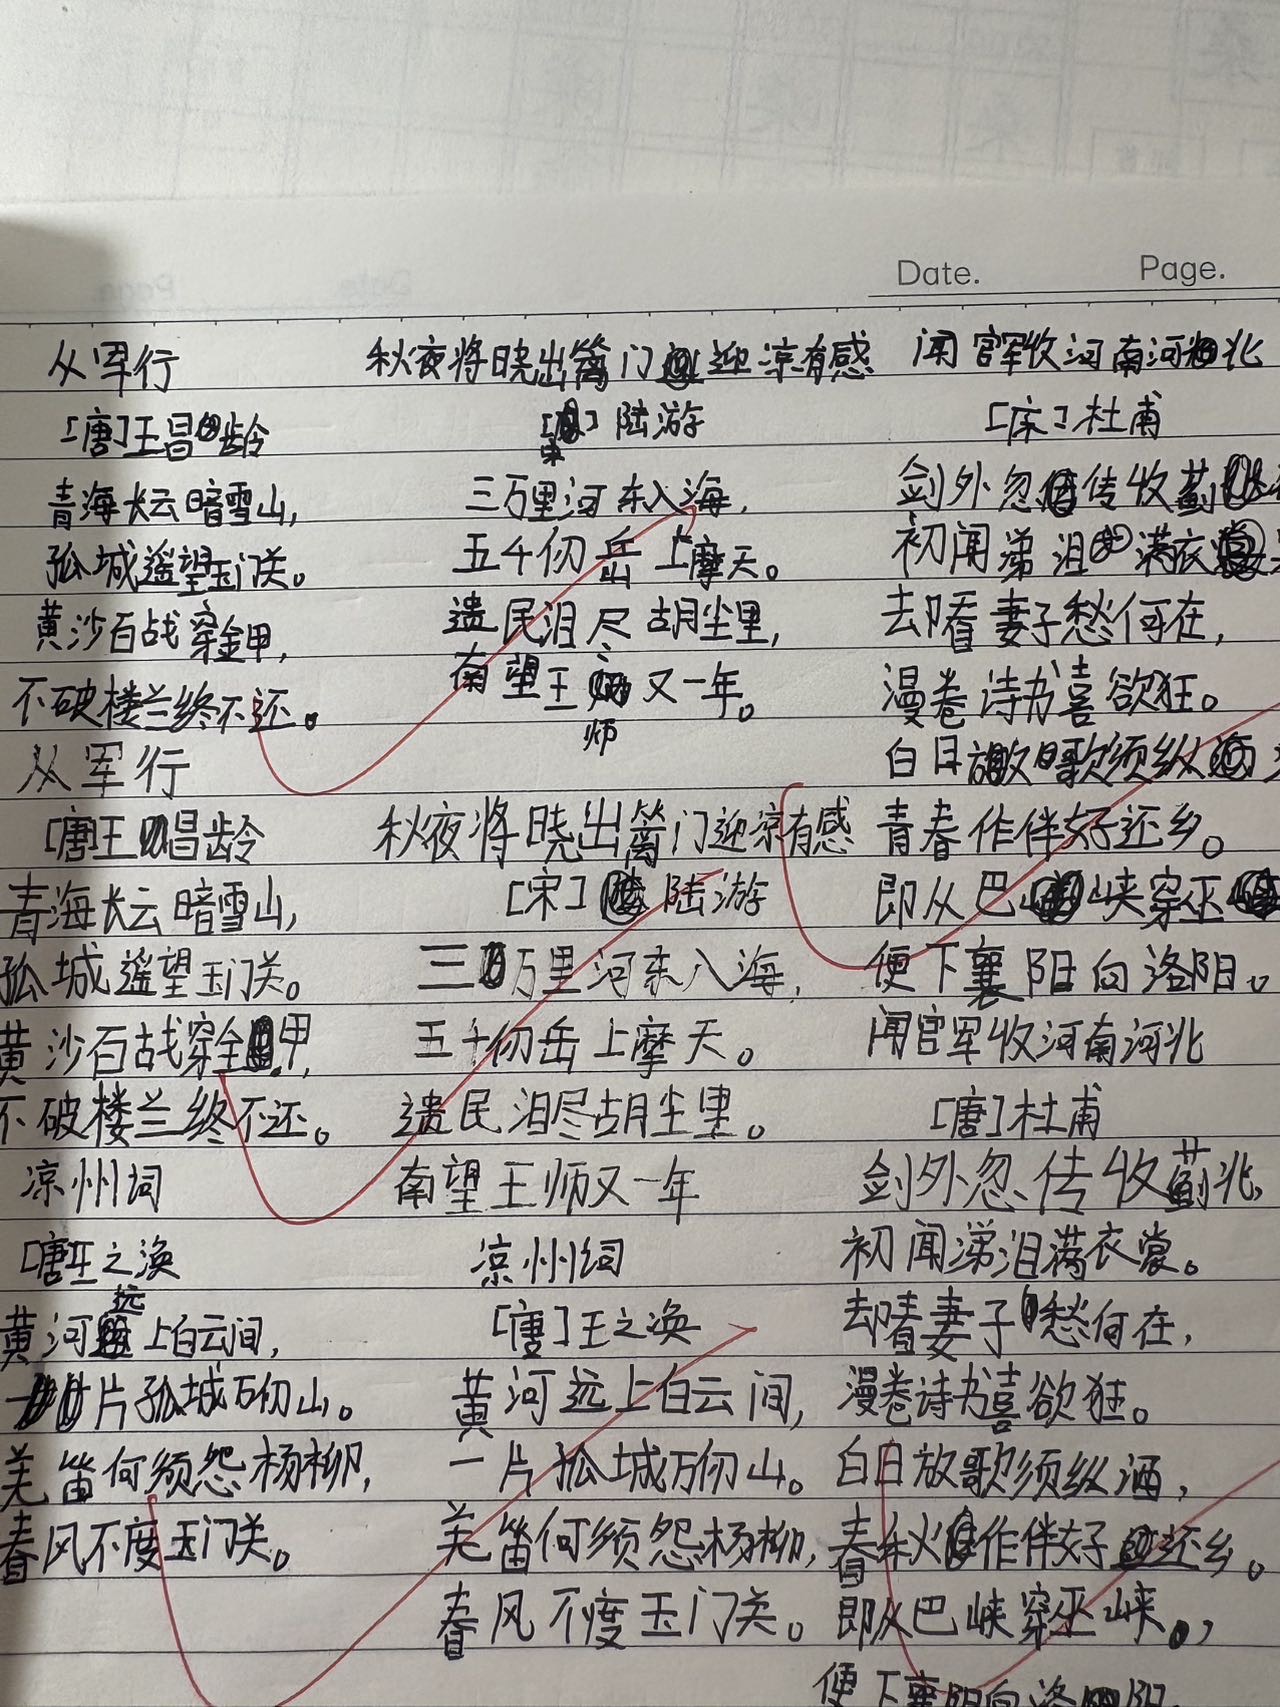 Date. Page.
从军行
[唐]王昌龄
青海长云暗雪山,
孤城遥望玉门关。
黄沙百战穿金甲,
不破楼兰终不还。
从军行
[唐]王昌龄
青海长云暗雪山,
孤城遥望玉门关。
黄沙百战穿金甲,
不破楼兰终不还。
凉州词
[唐]王之涣
黄河远上白云间,
一片孤城万仞山。
羌笛何须怨杨柳,
春风不度玉门关。
秋夜将晓出篱门迎凉有感
[宋]陆游
三万里河东入海,
五千仞岳上摩天。
遗民泪尽胡尘里,
南望王师又一年。
秋夜将晓出篱门迎凉有感
[宋]陆游
三万里河东入海,
五千仞岳上摩天。
遗民泪尽胡尘里。
南望王师又一年
凉州词
[唐]王之涣
黄河远上白云间,
一片孤城万仞山。
羌笛何须怨杨柳,
春风不度玉门关。
闻官军收河南河北
[宋]杜甫
剑外忽传收蓟
初闻涕泪满衣
去却看妻子愁何在,
漫卷诗书喜欲狂。
白日放歌须纵
青春作伴好还乡。
即从巴峡穿巫
便下襄阳向洛阳。
闻官军收河南河北
[唐]杜甫
剑外忽传收蓟北,
初闻涕泪满衣裳。
却看妻子愁何在,
漫卷诗书喜欲狂。
白日放歌须纵酒,
春秋作伴好还乡。
即从巴峡穿巫峡。,
便下襄阳向洛阳